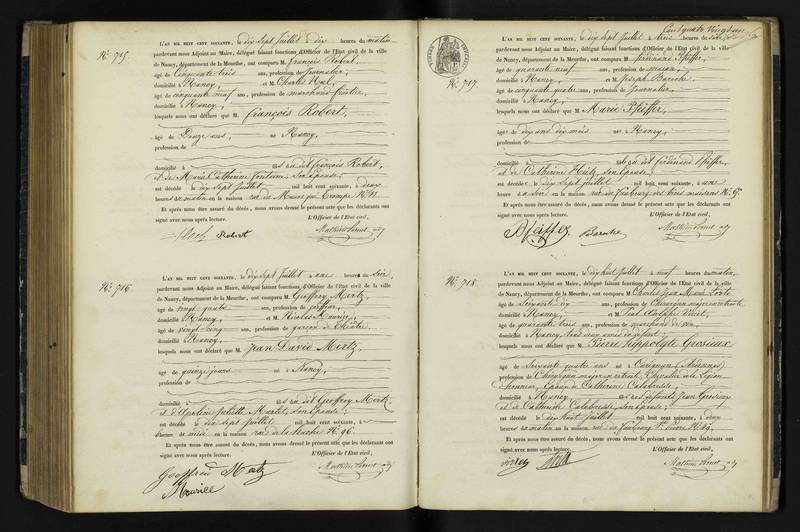 N.º 715.
L'AN MIL HUIT CENT SOIXANTE, le dix Sept Juillet à dix heures du matin
pardevant nous Adjoint au Maire, délégué faisant fonctions d'Officier de l'Etat civil de la ville
de Nancy, département de la Meurthe, ont comparu M. François Robert,
âgé de Cinquante trois ans, profession de Journalier,
domicilié à Nancy, et M. Charles
âgé de cinquante neuf ans, profession de marchand fruitier
domicilié à Nancy,
lesquels nous ont déclaré que M. François Robert,
âgé de Douze ans, né à Nancy,
profession de
domicilié à fils du dit François Robert,
et de Marie Catherine son Epouse;
est décédé le dix Sept Juillet mil huit cent soixante, à deux
heures du matin en la maison rue du N.º 11.
Et après nous être assuré du décès, nous avons dressé le présent acte que les déclarants ont
signé avec nous après lecture. L'Officier de l'Etat civil,
Robert
N.º 716.
L'AN MIL HUIT CENT SOIXANTE, le dix Sept Juillet à une heure du Soir,
pardevant nous Adjoint au Maire, délégué faisant fonctions d'Officier de l'Etat civil de la ville
de Nancy, département de la Meurthe, ont comparu M. Geoffroy Mertz,
âgé de vingt quatre ans, profession de coiffeur,
domicilié à Nancy, et M. Nicolas Maurice,
âgé de vingt cinq ans, profession de garçon de Théâtre,
domicilié à Nancy,
lesquels nous ont déclaré que M. Jean David Mertz,
âgé de quinze jours né à Nancy,
profession de
domicilié à fils du dit Geoffroy Mertz
et d' son Epouse;
est décédé le dix Sept Juillet mil huit cent soixante, à
heures de midi en la maison rue de la N.º 96.
Et après nous être assuré du décès, nous avons dressé le présent acte que les déclarants ont
signé avec nous après lecture. L'Officier de l'Etat civil,
Mertz
Maurice
Cent quatre vingt
N.º 717.
L'AN MIL HUIT CENT SOIXANTE, le dix Sept Juillet à trois heures du Soir
pardevant nous Adjoint au Maire, délégué faisant fonctions d'Officier de l'Etat civil de la ville
de Nancy, département de la Meurthe, ont comparu M. ferdinand Pfeiffer,
âgé de quarante neuf ans, profession de maçon,
domicilié à Nancy, et M. Joseph Baroche
âgé de cinquante quatre ans, profession de Journalier,
domicilié à Nancy,
lesquels nous ont déclaré que M. Marie Pfeiffer,
âgée de dix ans dix mois née à Nancy,
profession de
domicilié à fille du dit ferdinand Pfeiffer,
et de Catherine son Epouse;
est décédée le dix Sept Juillet mil huit cent soixante, à une
heure du soir en la maison rue du faubourg des trois maisons N.º
Et après nous être assuré du décès, nous avons dressé le présent acte que les déclarants ont
signé avec nous après lecture. L'Officier de l'Etat civil,
Pfeiffer Baroche
N.º 718.
L'AN MIL HUIT CENT SOIXANTE, le dix huit Juillet à neuf heures du matin,
pardevant nous Adjoint au Maire, délégué faisant fonctions d'Officier de l'Etat civil de la ville
de Nancy, département de la Meurthe, ont comparu M. Charles Jean Marie
âgé de Soixante dix ans, profession de Chirurgien major en retraite
domicilié à Nancy, et M. Paul
âgé de quarante trois ans, profession de marchand de
domicilié à Nancy, tous deux amis du défunt,
lesquels nous ont déclaré que M. Pierre Hippolyte Grosieux
âgé de Soixante quatre ans né à Carignan (Ardennes)
profession de Chirurgien major en retraite, Chevalier de la Légion
d'honneur, Epoux de Catherine Calabresse,
domicilié à Nancy, fils de défunts Jean Grosieux
et de Catherine Calabresse, son Epouse;
est décédé le dix huit Juillet mil huit cent soixante, à deux
heures du matin en la maison rue du faubourg St. Pierre N.º
Et après nous être assuré du décès, nous avons dressé le présent acte que les déclarants ont
signé avec nous après lecture. L'Officier de l'Etat civil,